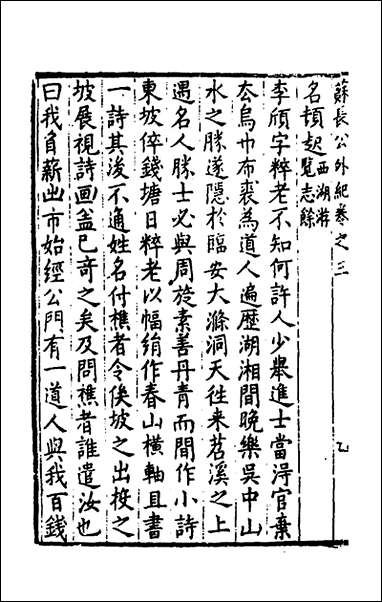 蘇長公外紀卷之三
乙
名頓起西湖遊
覽志餘
李頎字粹老不知何許人少舉進士當淂官棄
去烏巾布裘為道人遍歷湖湘間晚樂吳中山
水之勝遂隱於臨安大滌洞天往来苕溪之上
遇名人勝士必與周旋素善丹青而間作小詩
東坡倅錢塘日粹老以幅絹作春山橫軸且書
一詩其後不通姓名付樵者令俟坡之出投之
坡展視詩画盖已奇之矣及問樵者誰遣汝也
曰我負薪出市始經公門有一道人與我百錢